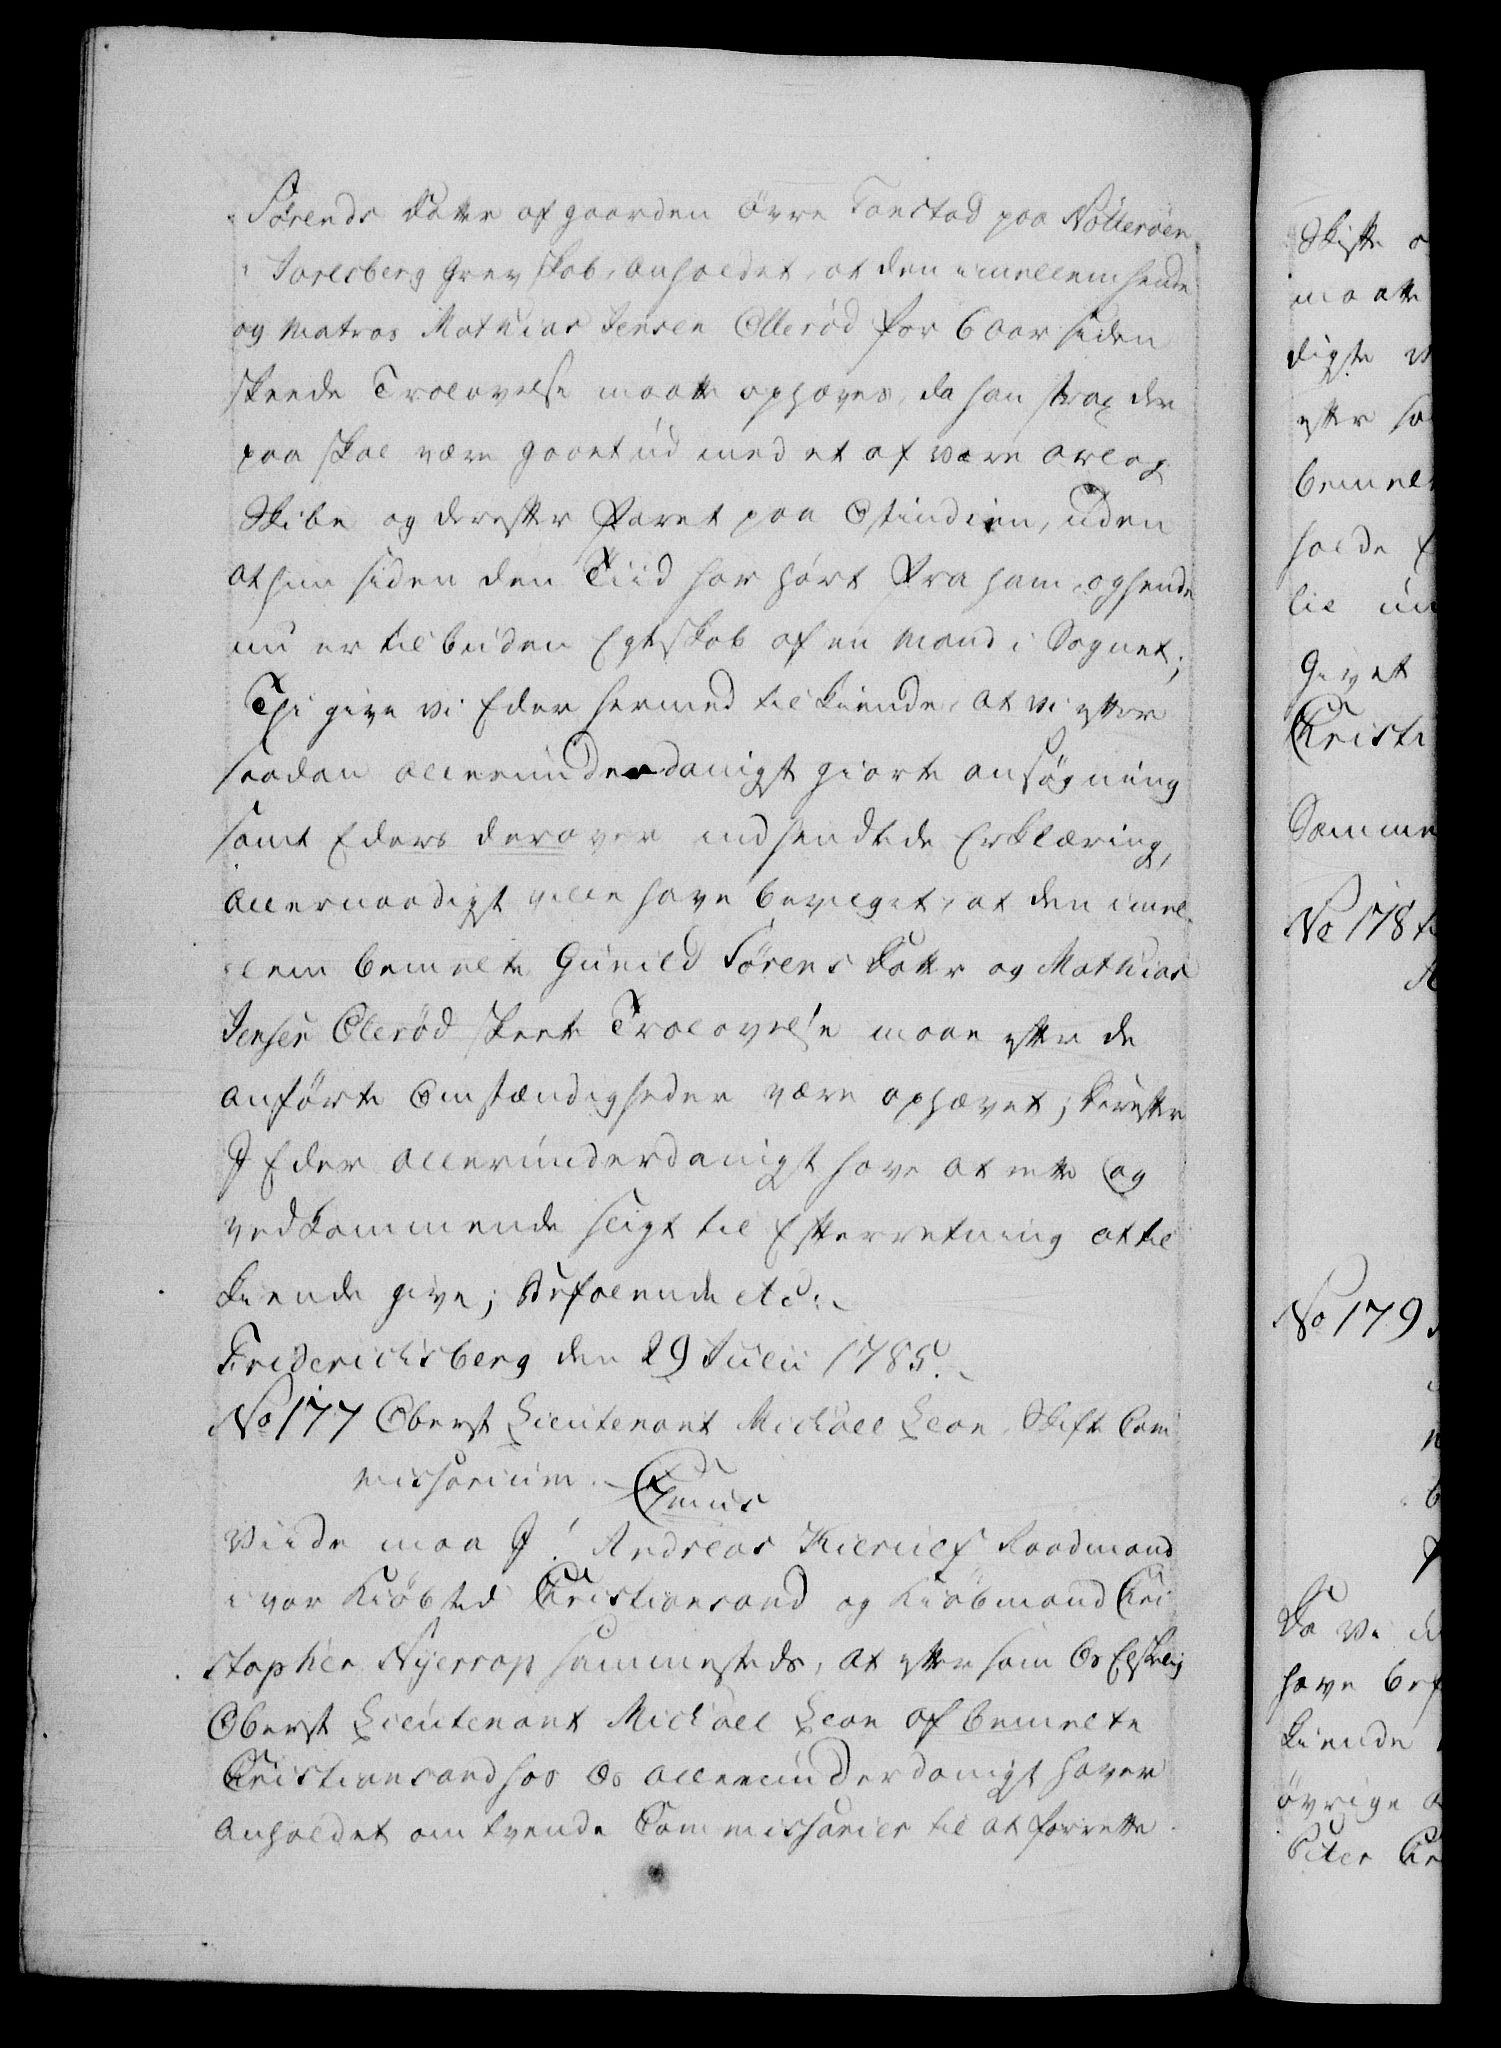 Sørends datter af gaarden Øvre Tanstad paa Nøtterøen
i Jarlsberg Grevskab, anholdet, at den imellem hende
og Matros Mathias Jensen Ollerød for 6 Aar siden
skeede Trolovelse maatte ophæves, da han strax der
paa skal være gaaet ud med et af vore Orlog
Skibe og derefter faret paa Ostindien, uden
at hun siden den Tiid har hørt fra ham, og hende
nu er tilbuden Egteskab af en Mand i Sognet;
Thi give vi Eder hermed tilkiende, at vi efter
saadan allerunderdanigst giorte ansøgning
samt Eders derover indsendtede Erklæring,
allernaadigst ville have bevilget, at den imel-
lem bemelte Gunild Sørens datter og Mathias
Jensen Ollerød skeete Trolovelse maae efter de
anførte Omstændigheder være ophævet; Derefter
I Eder allerunderdanigst have at rette og
vedkommende sligt til Efterretning at til
kiende give; Befalende etc:
Friderichsberg den 29 Julii 1785.
No 177 Oberst Lieutenant Michael Leon, Skifte Com
missarium.
C 7mus
Viide maa I! Andreas Kierulf Raadmand
i vor Kiøbsted Christiansand og Kiøbmand Chri
stopher Nyerrop sammesteds, at efter som Os Elskelig
Oberst Lieutenant Michael Leon af bemelte
Christiansand hos Os allerunderdanigst haver
anholdet om tvende Commissarier til at forrette
Skifte
maatte
digste
efter
bemel
holde
lie
Givet
Christi
Samme
No 178
No 179
Da Vi
have bef
kiende
øvrige
Piter